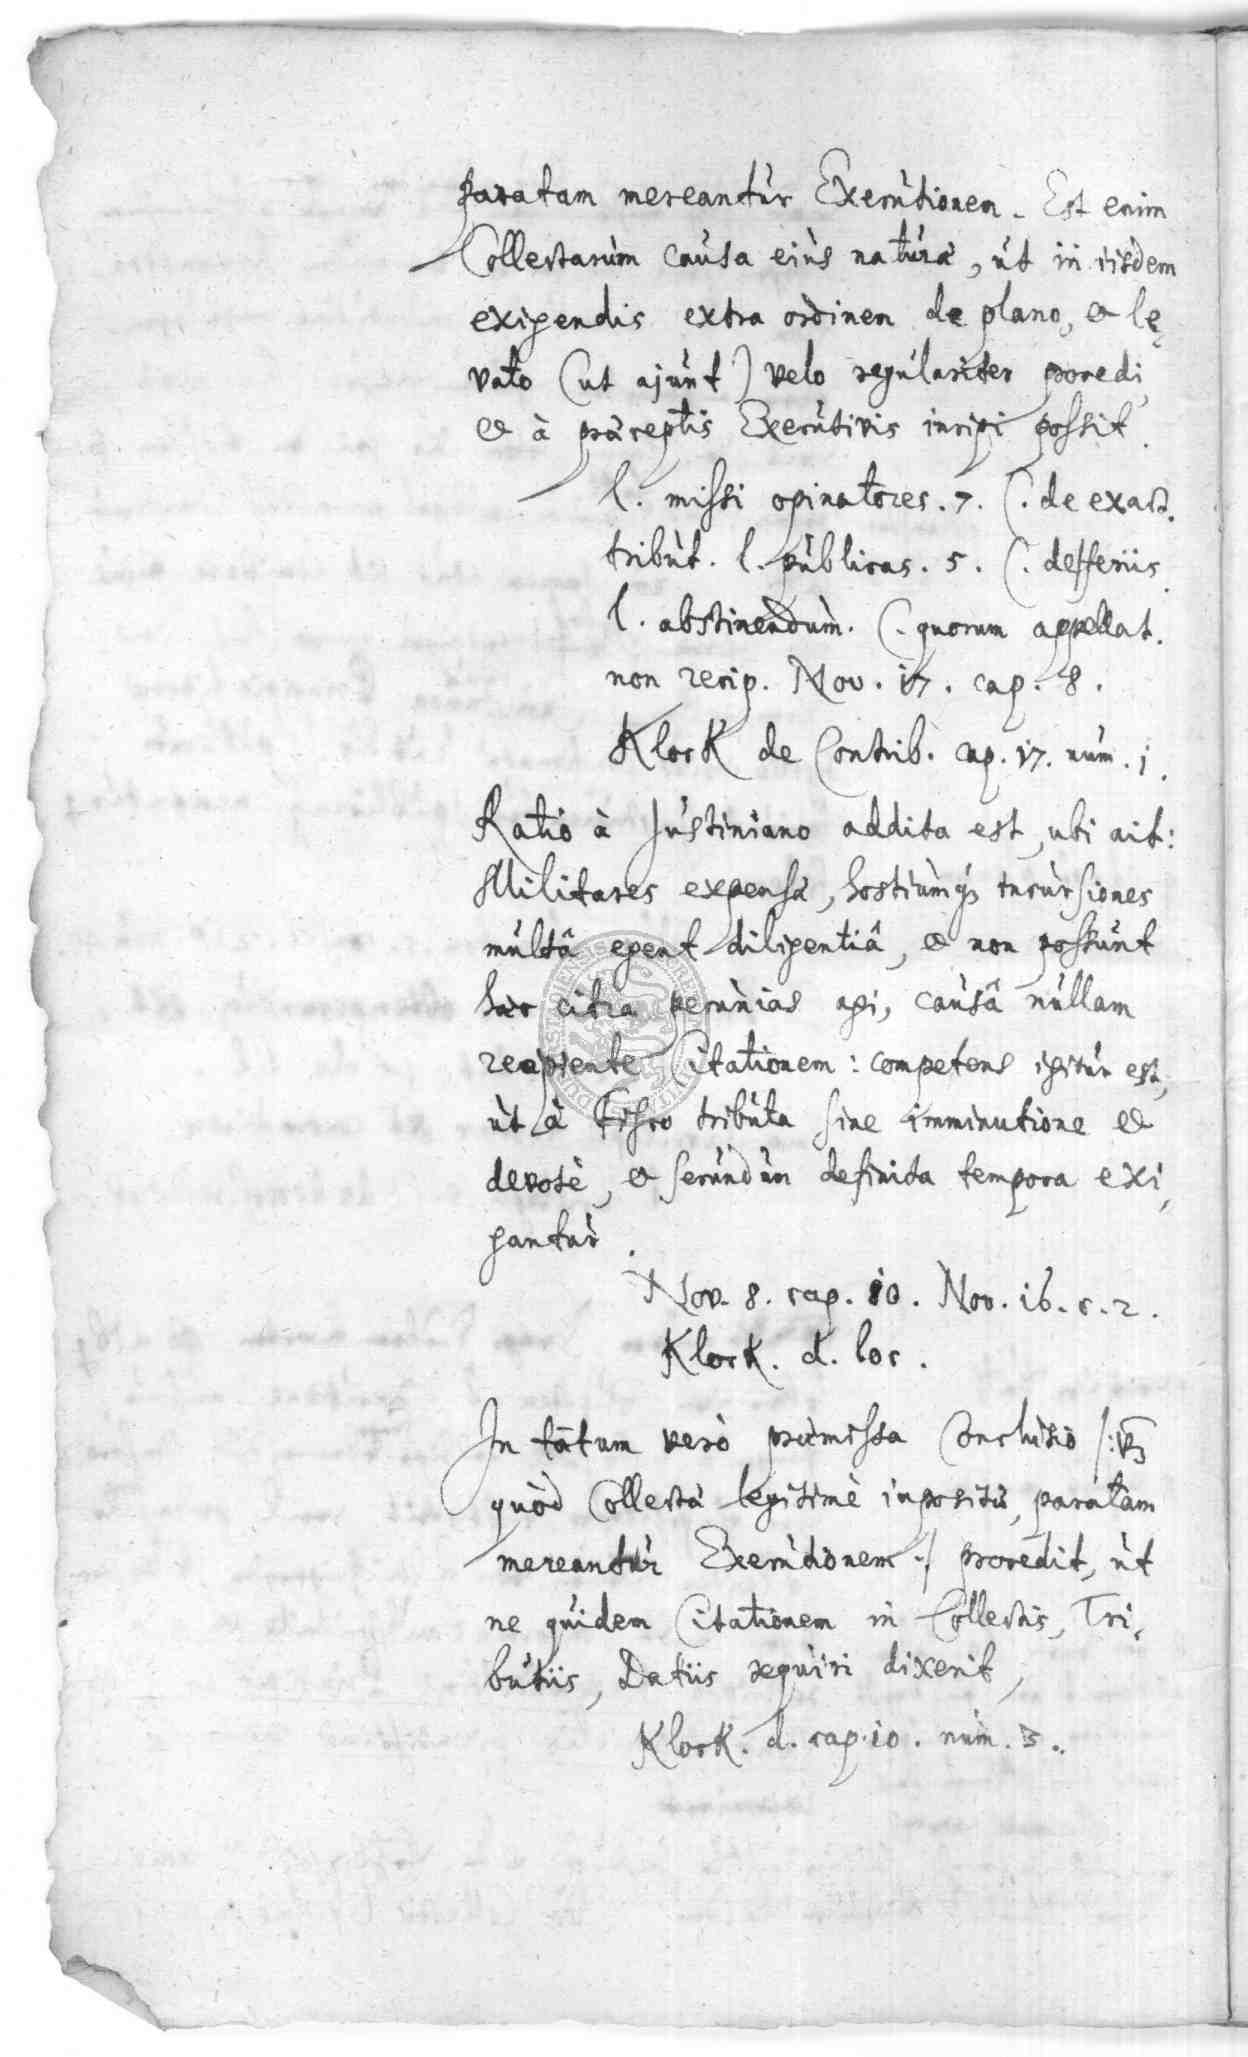 paratam mereantùr Execùtionem. Est enim
Collectarùm caùsa eiùs natùræ, ùt in iisdem
exigendis extra ordinem de plano, et le,
vato (ut ajùnt) velo regùlariter procedi,
et à præceptis Execùtivis incipi possit.
l. missi opinatores. 7. C. de exact.
tribùt. l. pùblicas. 5. C. de feriis.
l. abstinendùm. C. quorum appellat.
non recip. Nov. 17. cap. 8.
Klock de Contrib. cap. 17. nùm. 1.
Ratio à Jùstiniano addita est, ubi ait:
Militares expensæ, hostiùmq3 incùrsiones
mùltâ egent diligentiâ, et non possùnt
hæc citra pecùnias agi, caùsâ nùllam
recipiente Citationem: competens igitùr est,
ùt à Fisco tribùta sine imminutione et
devotè, et secùndùm definita tempora exi,
gantùr.
Nov. 8. cap. 10. Nov. 16. c. 2.
Klock. d. loc.
In tãtum verò præmissa Conclùsio /:vz
quòd Collectæ legitimè inpositæ, paratam
mereantùr Execùtionem :/ procedit, ùt
ne qùidem Citationem in Collectis, Tri,
bùtiis, Datiis reqùiri dixerit,
Klock. d. cap. 10. nùm. 3.